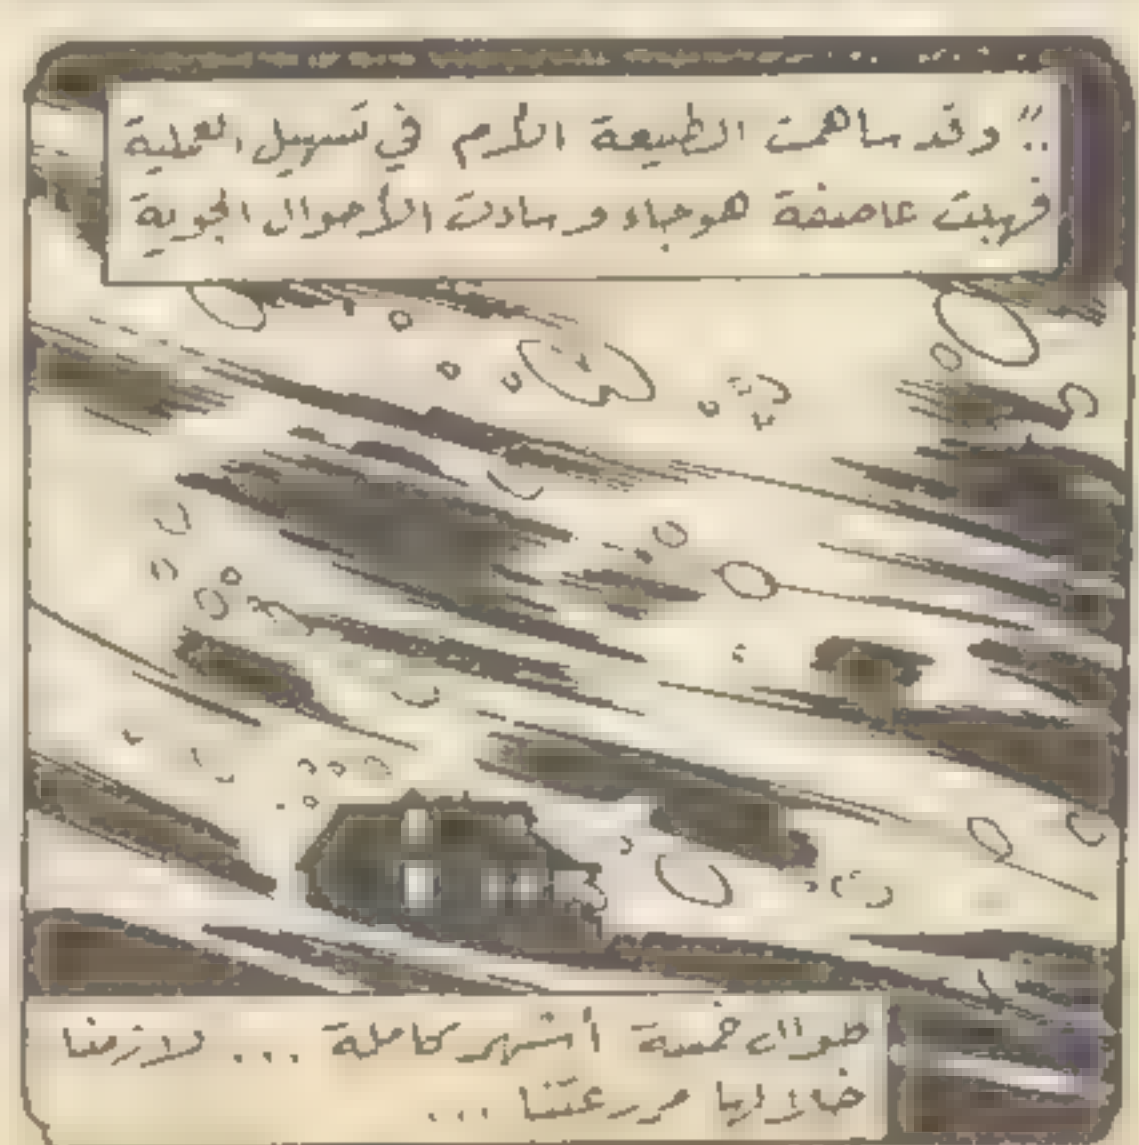 .. وقد ساهمت الطبيعة الأم في تسهيل العملية
فهبت عاصفة هوجاء وسادت الأحوال الجوية
طوال خمسة أشهر كاملة ... لازمنا
خلالها مزرعتنا ...